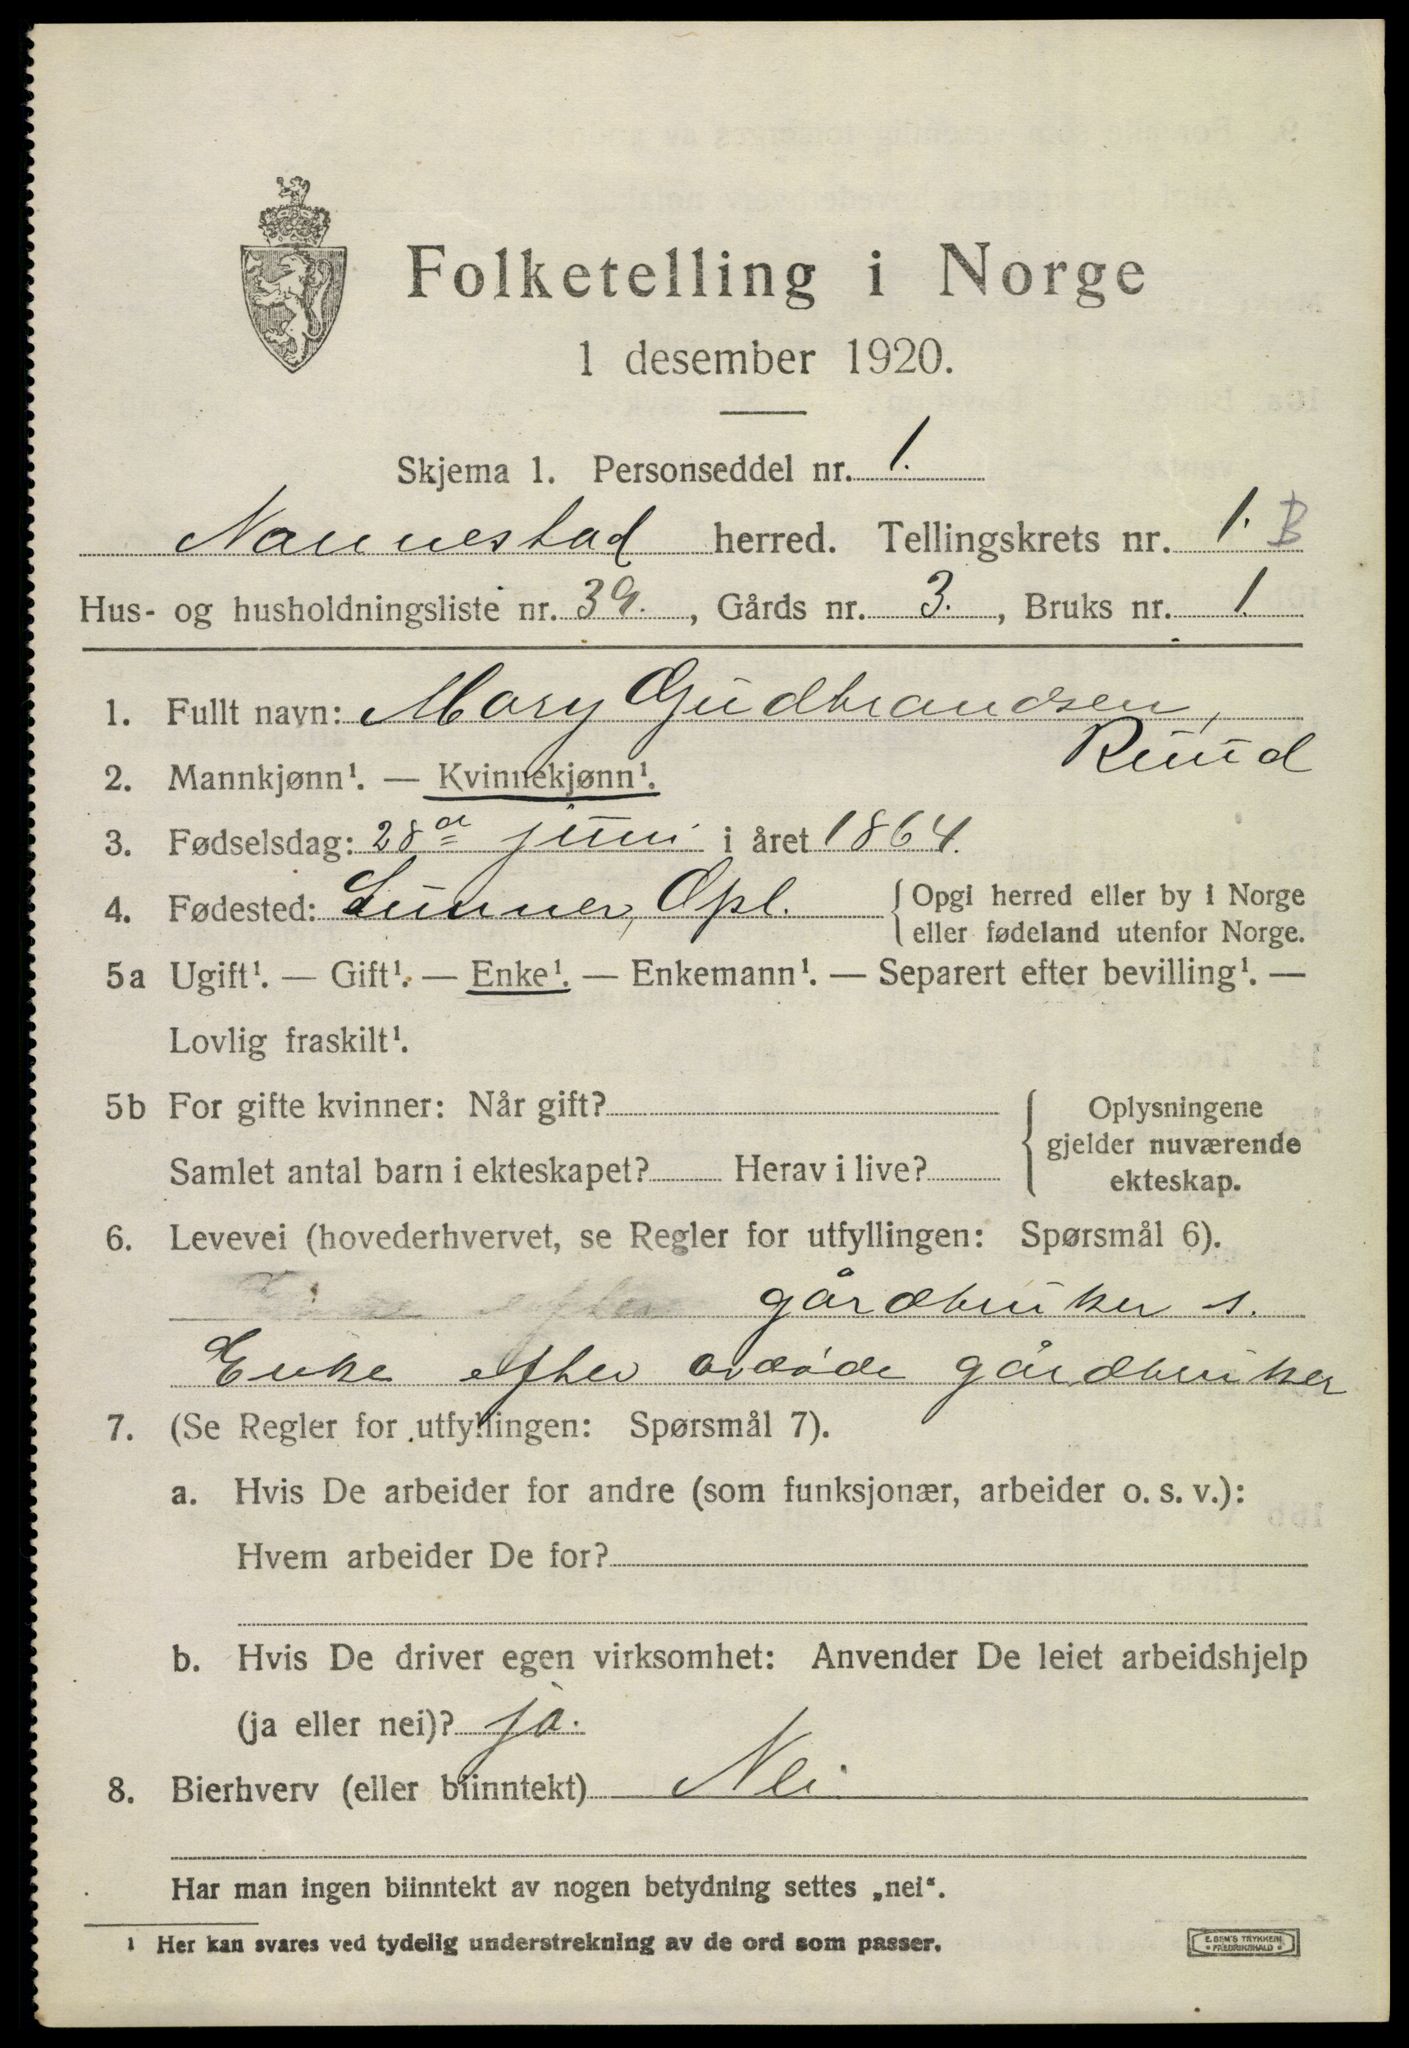 Folketelling i Norge
1 desember 1920.
Skjema 1. Personseddel nr. 1.
Nannestad herred. Tellingskrets nr. 1. B
Hus- og husholdningsliste nr. 39., Gårds nr. 3., Bruks nr. 1.
1. Fullt navn: Mary Gudbrandsen,
Ruud
2. Mannkjønn¹. — Kvinnekjønn¹.
3. Fødselsdag: 28de juni i året 1864.
4. Fødested: Lunner, Opl. { Opgi herred eller by i Norge
eller fødeland utenfor Norge.
5a Ugift¹. — Gift¹. — Enke¹. — Enkemann¹. — Separert efter bevilling¹. —
Lovlig fraskilt¹.
5b For gifte kvinner: Når gift? { Oplysningene
gjelder nuværende
Samlet antal barn i ekteskapet? Herav i live? ekteskap.
6. Levevei (hovederhvervet, se Regler for utfyllingen: Spørsmål 6).
efter gårdbruker s.
Enke efter avdøde gårdbruker
7. (Se Regler for utfyllingen: Spørsmål 7).
a. Hvis De arbeider for andre (som funksjonær, arbeider o. s. v.):
Hvem arbeider De for?
b. Hvis De driver egen virksomhet: Anvender De leiet arbeidshjelp
(ja eller nei)? ja.
8. Bierhverv (eller biinntekt) Nei
Har man ingen biinntekt av nogen betydning settes „nei“.
¹ Her kan svares ved tydelig understrekning av de ord som passer.
E. SEM'S TRYKKERI
• FREDRIKSHALD •